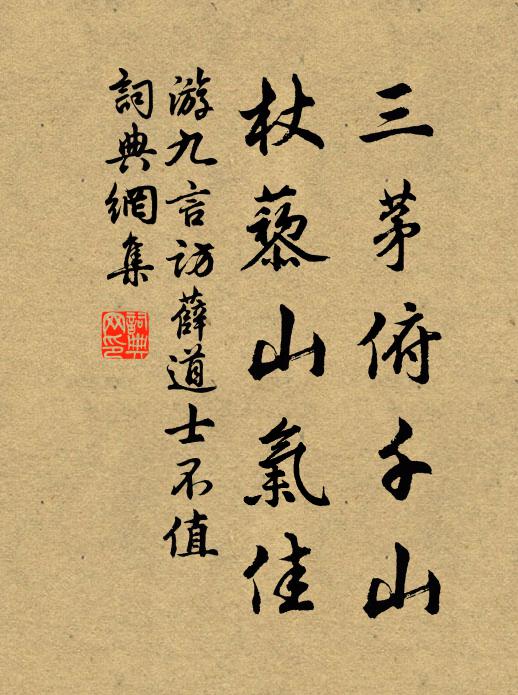 三茅俯千山
杖藜山氣佳
游九言訪薛道士不值
詞典網集
詞典網印